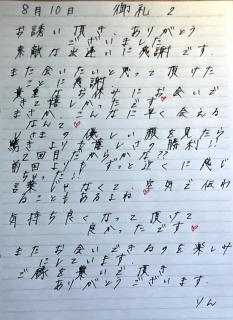 8月10日 御礼 2
お誘い頂き、ありがとう
ございました
素敵な出逢いに感謝です。
また会いたいと思って頂けた
ことに感謝
貴重なお休みにお会いで
きて嬉しかったです
さまに、こんなに早く会える
なんて♡
しさまの優しい顔を見たら
さの勝利!!
2回目だからかな??
前回よりもずっと近くに感じ
ちゃった!!
言葉じゃなくて、空気で伝わ
ることもあるよね
気持ち良くなって頂けて
良かったです♡
またお会いできるのを楽しみ
にしています。
ご縁を繋いで頂き
ありがとうございます。
りん